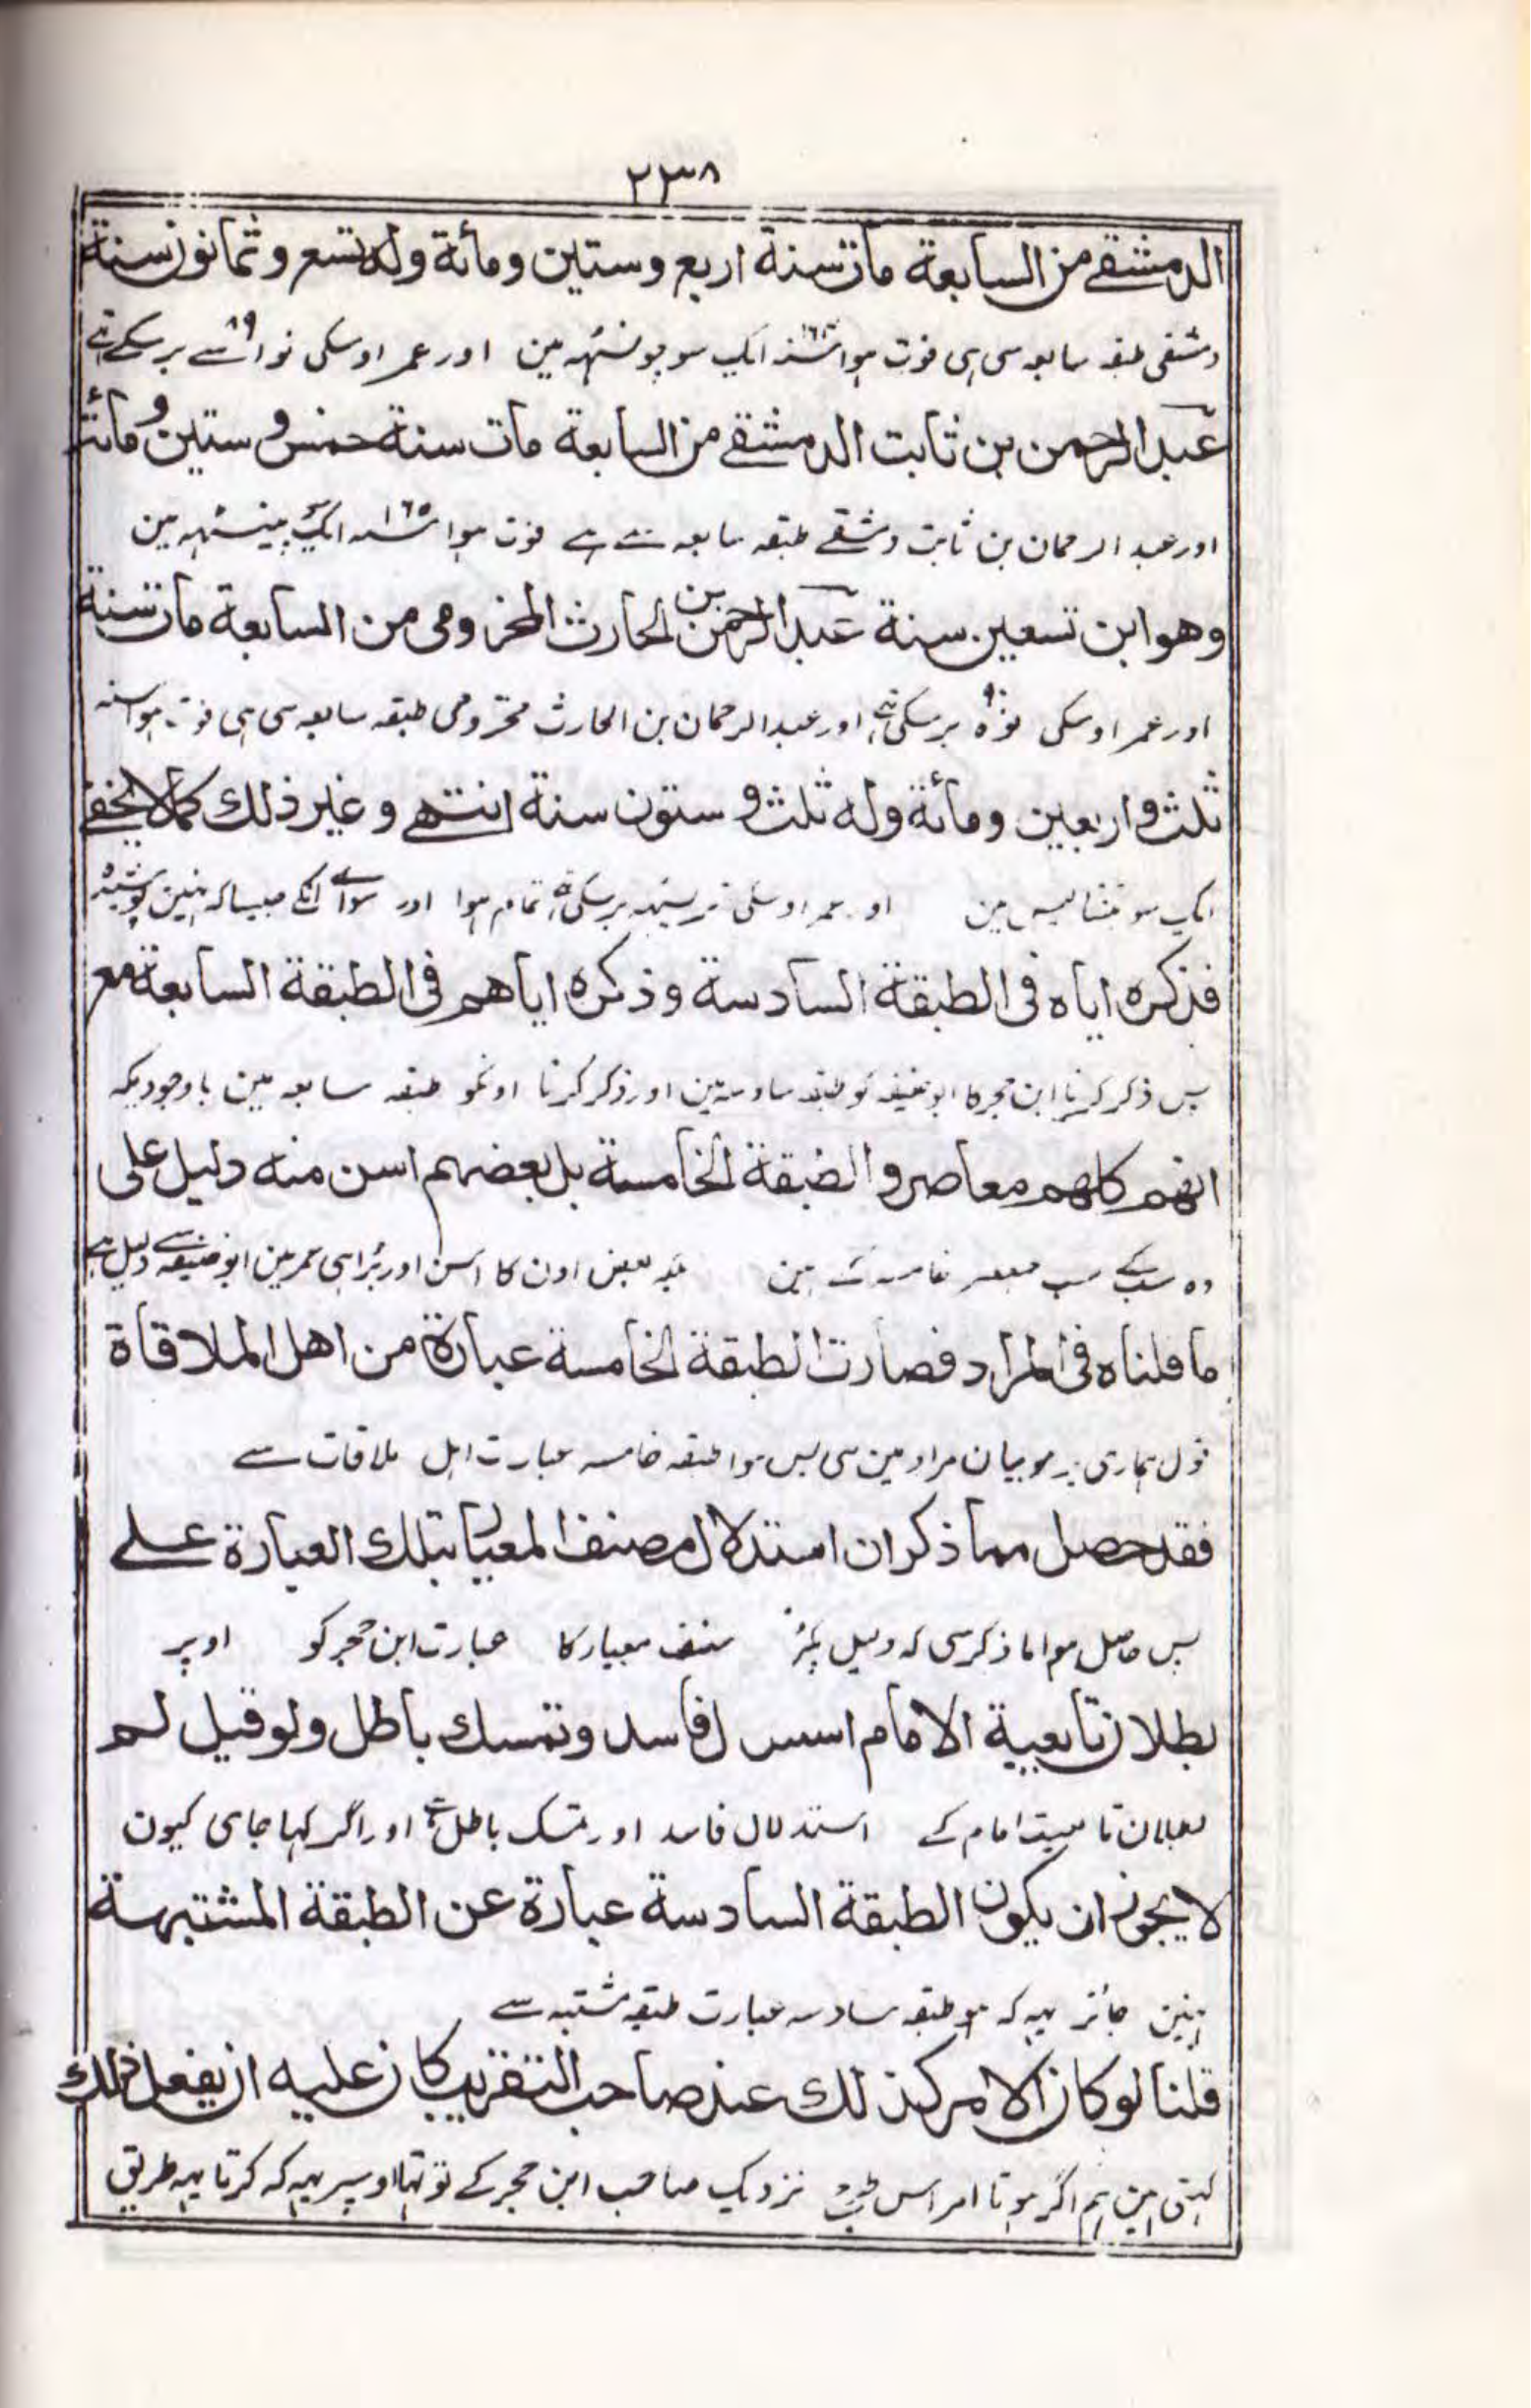 ٢٣٨
الدمشقے من السابعة مات سنة اربع وستين ومائة وله تسع وثمانون سنة
دمشقی طبقہ سابعہ سی ہی فوت ہوا سنہ ۱۶۴ ایک سو چونسٹہہ مین اور عمر اوسکی نواسے ۸۹ برسکے تہے
عبد الرحمن بن ثابت الدمشقے من السابعة مات سنة خمس و ستين و مائة
اور عبد الرحمان بن ثابت دمشقے طبقہ سابعہ سے ہے فوت ہوا سنہ ۱۶۵ ایک سو پینسٹہہ مین
وهو ابن تسعين سنة عبد الرحمن بن الحارث المخزومی من السابعة مات سنة
اور عمر اوسکی نوہ برسکی تہی اور عبد الرحمان بن الحارث مخزومی طبقہ سابعہ سی ہی فوت ہوا سنہ
ثلث و اربعين ومائة وله ثلث و ستون سنة انتهے وغير ذلك كما لا يخفے
ایک سو تنتالیس مین اور عمر اوسکی تریسٹہہ برسکی تہی تمام ہوا اور سواے انکے جیساکہ نہین پوشیدہ
فذكره اياه فی الطبقة السادسة وذكره اياهم فی الطبقة السابعة مع
پس ذکر کرنا ابن حجر کا ابو حنیفہ کو طبقہ سادسہ مین اور ذکر کرنا اونکو طبقہ سابعہ مین باوجودیکہ
انهم كلهم معاصروا الطبقة الخامسة بل بعضهم اسن منه دليل علی
وہ سبکے سب معصر خامسہ کے ہین بلکہ بعض اون کا اسن اور بڑا ہی عمر مین ابو حنیفہ سے دلیل ہے
ما قلناه فی المراد فصارت الطبقة الخامسة عبارة من اهل الملاقاة
قول ہماری پر جو بیان مراد مین سی پس ہوا طبقہ خامسہ عبارت اہل ملاقات سے
فقد حصل مما ذكر ان استدلال مصنف المعيار بتلك العبارة علے
پس حاصل ہوا ما ذکر سی کہ دلیل پکڑنا مصنف معیار کا عبارت ابن حجر کو اوپر
بطلان تابعية الامام استدلال فاسد وتمسك باطل ولو قيل لم
بطلان تابعیت امام کے استدلال فاسد اور تمسک باطل ہے اور اگر کہا جای کیون
لا يجوز ان يكون الطبقة السادسة عبارة عن الطبقة المشتبهة
نہین جائز یہہ کہ ہو طبقہ سادسہ عبارت طبقہ مشتبہ سے
قلنا لو كان الامر كذلك عند صاحب التقريب كان عليه ان يفعل ذلك
کہتی ہین ہم اگر ہوتا امر اس طرح نزدیک صاحب ابن حجر کے تو تہا اوسپر یہہ کہ کرتا یہہ طریق